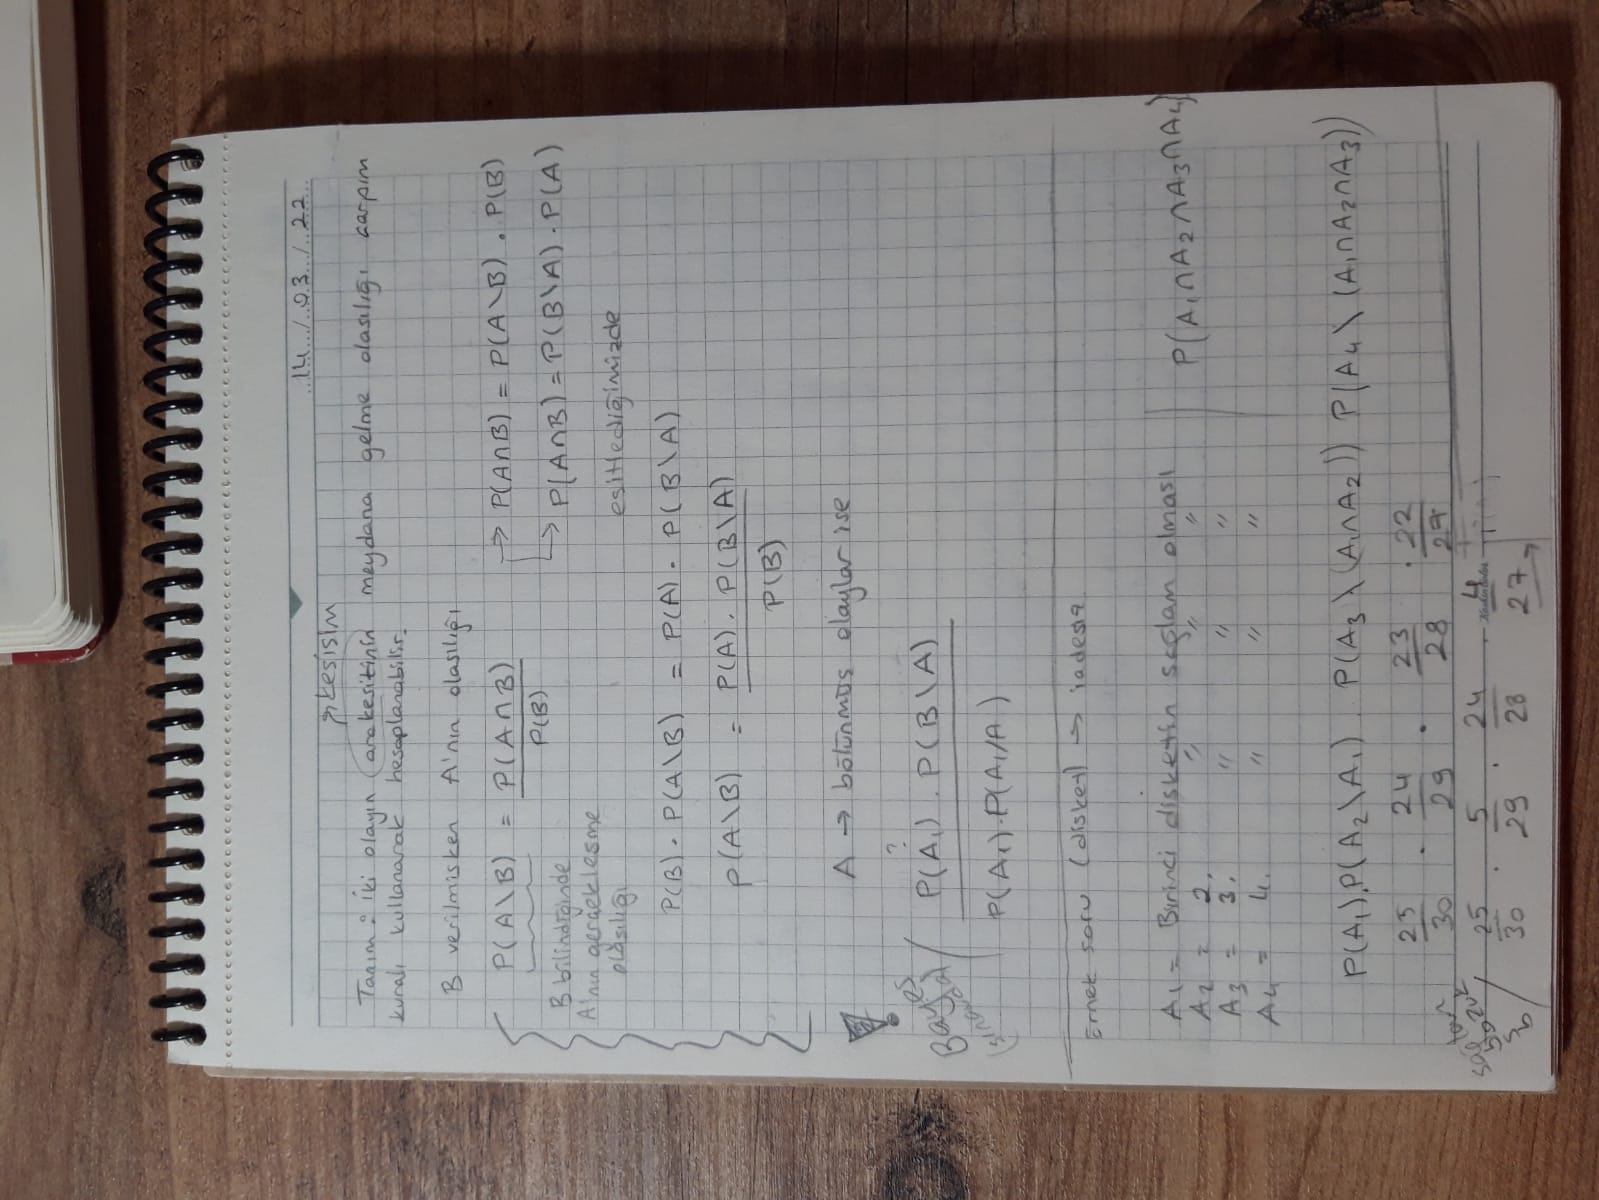 14 / 03 / 22
kesişim
Tanım: iki olayın arakesitinin meydana gelme olasılığı çarpım
kuralı kullanarak hesaplanabilir.
B verilmişken A'nın olasılığı
P(A\B) = P(A∩B) / P(B)
→ P(A∩B) = P(A\B) . P(B)
→ P(A∩B) = P(B\A) . P(A)
eşitlediğimizde
B bilindiğinde
A'nın gerçekleşme
olasılığı
P(B) . P(A\B) = P(A) . P(B\A)
P(A\B) = P(A) . P(B\A) / P(B)
A → bölünmüş olaylar ise
Bayes
P(A₁) . P(B\A) / P(A₁) . P(A₁/A)
?
Örnek soru (disket) → iadesiz
A₁ = Birinci disketin sağlam olması
A₂ = 2. " " " "
A₃ = 3. " " " "
A₄ = 4. " " " "
P(A₁∩A₂∩A₃∩A₄)
P(A₁).P(A₂\A₁). P(A₃\(A₁∩A₂)) P(A₄\(A₁∩A₂∩A₃))
25/30 . 24/29 . 23/28 . 22/27
25/30 . 5/29 . 24/28 . 4/27 →